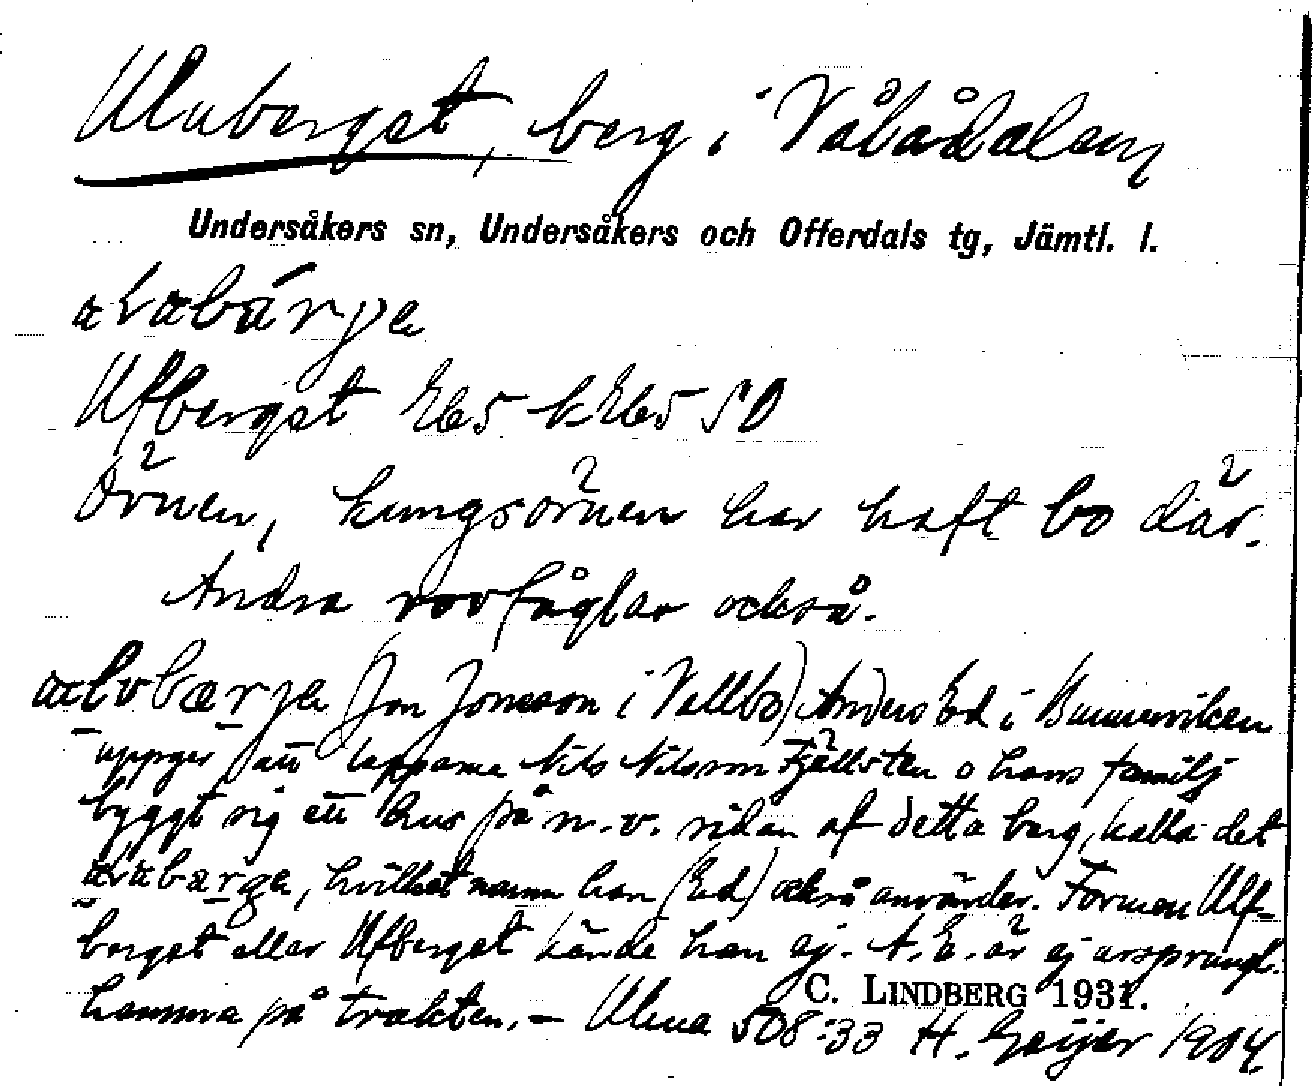 Uluberget, berg i Vålådalen
Undersåkers sn, Undersåkers och Offerdals tg, Jämtl. l.
Ufberget Eb5 kEb5 SO
Örnen, kungsörnen har haft bo där.
Andra rovfåglar också.
(Jon Jonsson i Vallbo) Anders Ed i Bunnerviken
uppger att lapparna Nils Nilsson Fjällsten o hans familj
byggt sig ett hus på n.v. sidan af detta berg, kalla det
, hvilket namn han (Ed) också använder. Formen Ulf-
berget eller Ufberget kände han ej. A. E. är ej ursprungl.
C. LINDBERG 1931.
hemma på trakten. – Ulma 508:33 H. Geijer 1904